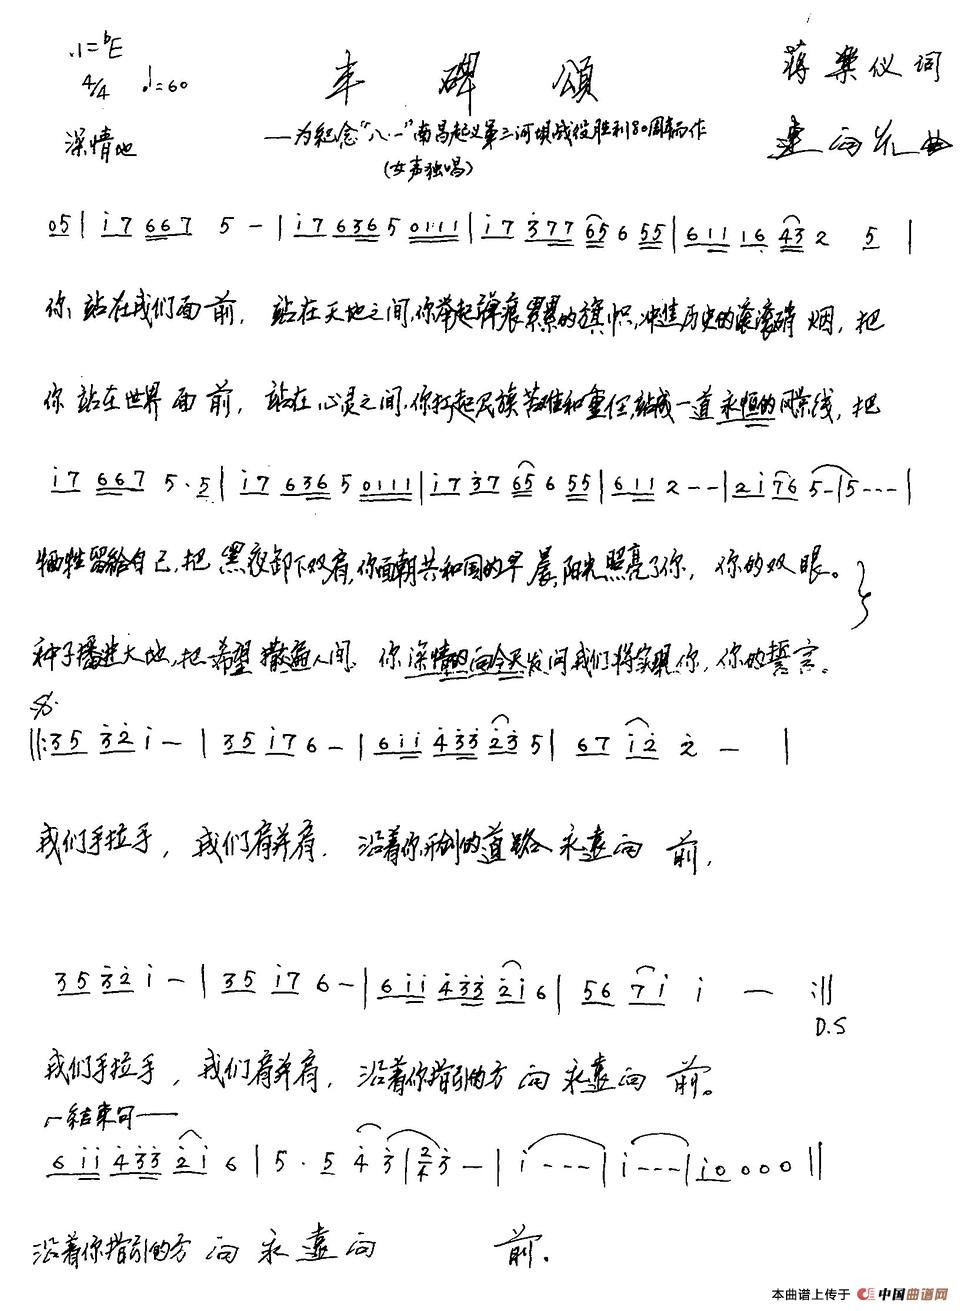 1=♭E
4/4 ♩=60
丰 碑 颂
蒋 乐 仪 词
——为纪念“八·一”南昌起义第三河坝战役胜利80周年而作
深情地
(女声独唱)
曲
05 | i7 667 5 - | i7 636 5 0111 | i7 377 65 6 55 | 611 16 43 2 5 |
你 站在我们面前, 站在天地之间,你举起弹痕累累的旗帜,冲进历史的滚滚硝烟,把
你 站在世界面前, 站在心灵之间,你扛起民族苦难和重任,站成一道永恒的风景线,把
i7 667 5·5 | i7 636 5 0111 | i7 37 65 6 55 | 611 2 - - | 2i76 5 - | 5 - - - |
牺牲留给自己,把黑夜卸下双肩,你面朝共和国的早晨,阳光照亮了你,你的双眼。
种子播进大地,把希望撒遍人间,你深情的向今天发问我们将实现你,你的誓言。
‖:35 32 i - | 35 i7 6 - | 6ii 433 23 5 | 67 i2 2 - |
我们手拉手, 我们肩并肩, 沿着你开创的道路永远向前,
35 32 i - | 35 i7 6 - | 6ii 433 2i 6 | 56 7i i - :‖
D.S
我们手拉手, 我们肩并肩, 沿着你指引的方向永远向前。
结束句
6ii 433 2i 6 | 5·5 4 3 | 2/4 3 - | i - - - | i - - - | i0 0 0 0 ‖
沿着你指引的方向永远向 前.
本曲谱上传于 中国曲谱网